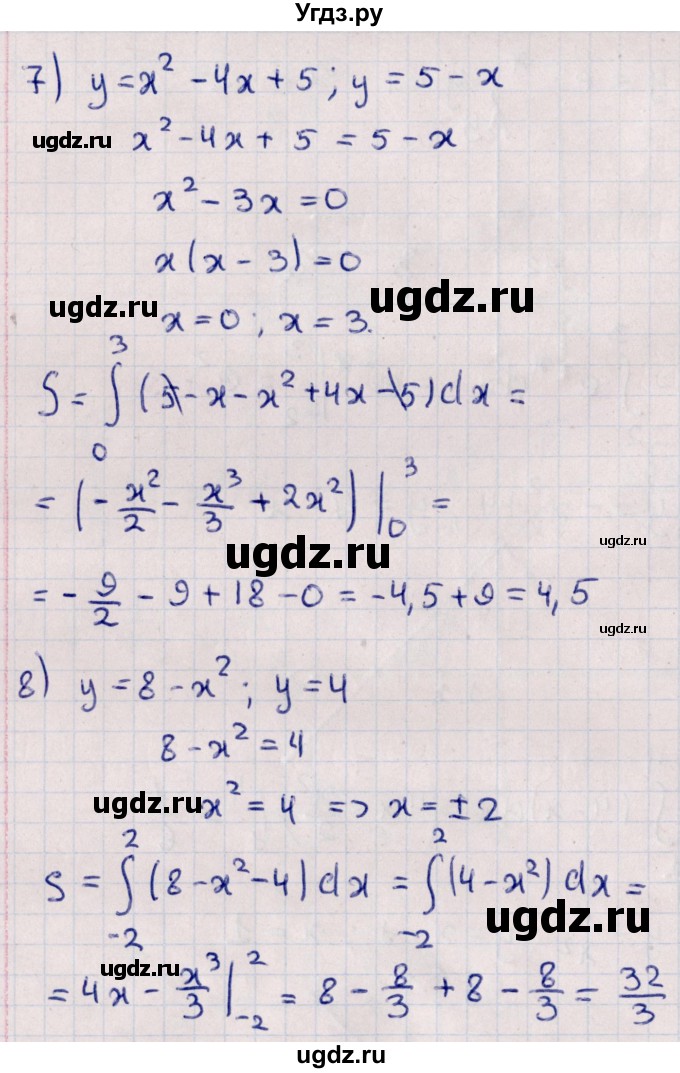 Угдз.ру
7) y = x² - 4x + 5; y = 5 - x
ugdz.ru x² - 4x + 5 = 5 - x
x² - 3x = 0
x(x - 3) = 0
ugdz.ru
ugdz.ru
x = 0; x = 3.
S = ∫₀³ (5 - x - x² + 4x - 5) dx =
= (- x²/2 - x³/3 + 2x²) |₀³ =
ugdz.ru
ugdz.ru
= - 9/2 - 9 + 18 - 0 = -4,5 + 9 = 4,5
ugdz.ru
8) y = 8 - x²; y = 4
8 - x² = 4
ugdz.ru x² = 4 => x = ±2
S = ∫₋₂² (8 - x² - 4) dx = ∫₋₂² (4 - x²) dx =
ugdz.ru
ugdz.ru
= 4x - x³/3 |₋₂² = 8 - 8/3 + 8 - 8/3 = 32/3
ugdz.ru